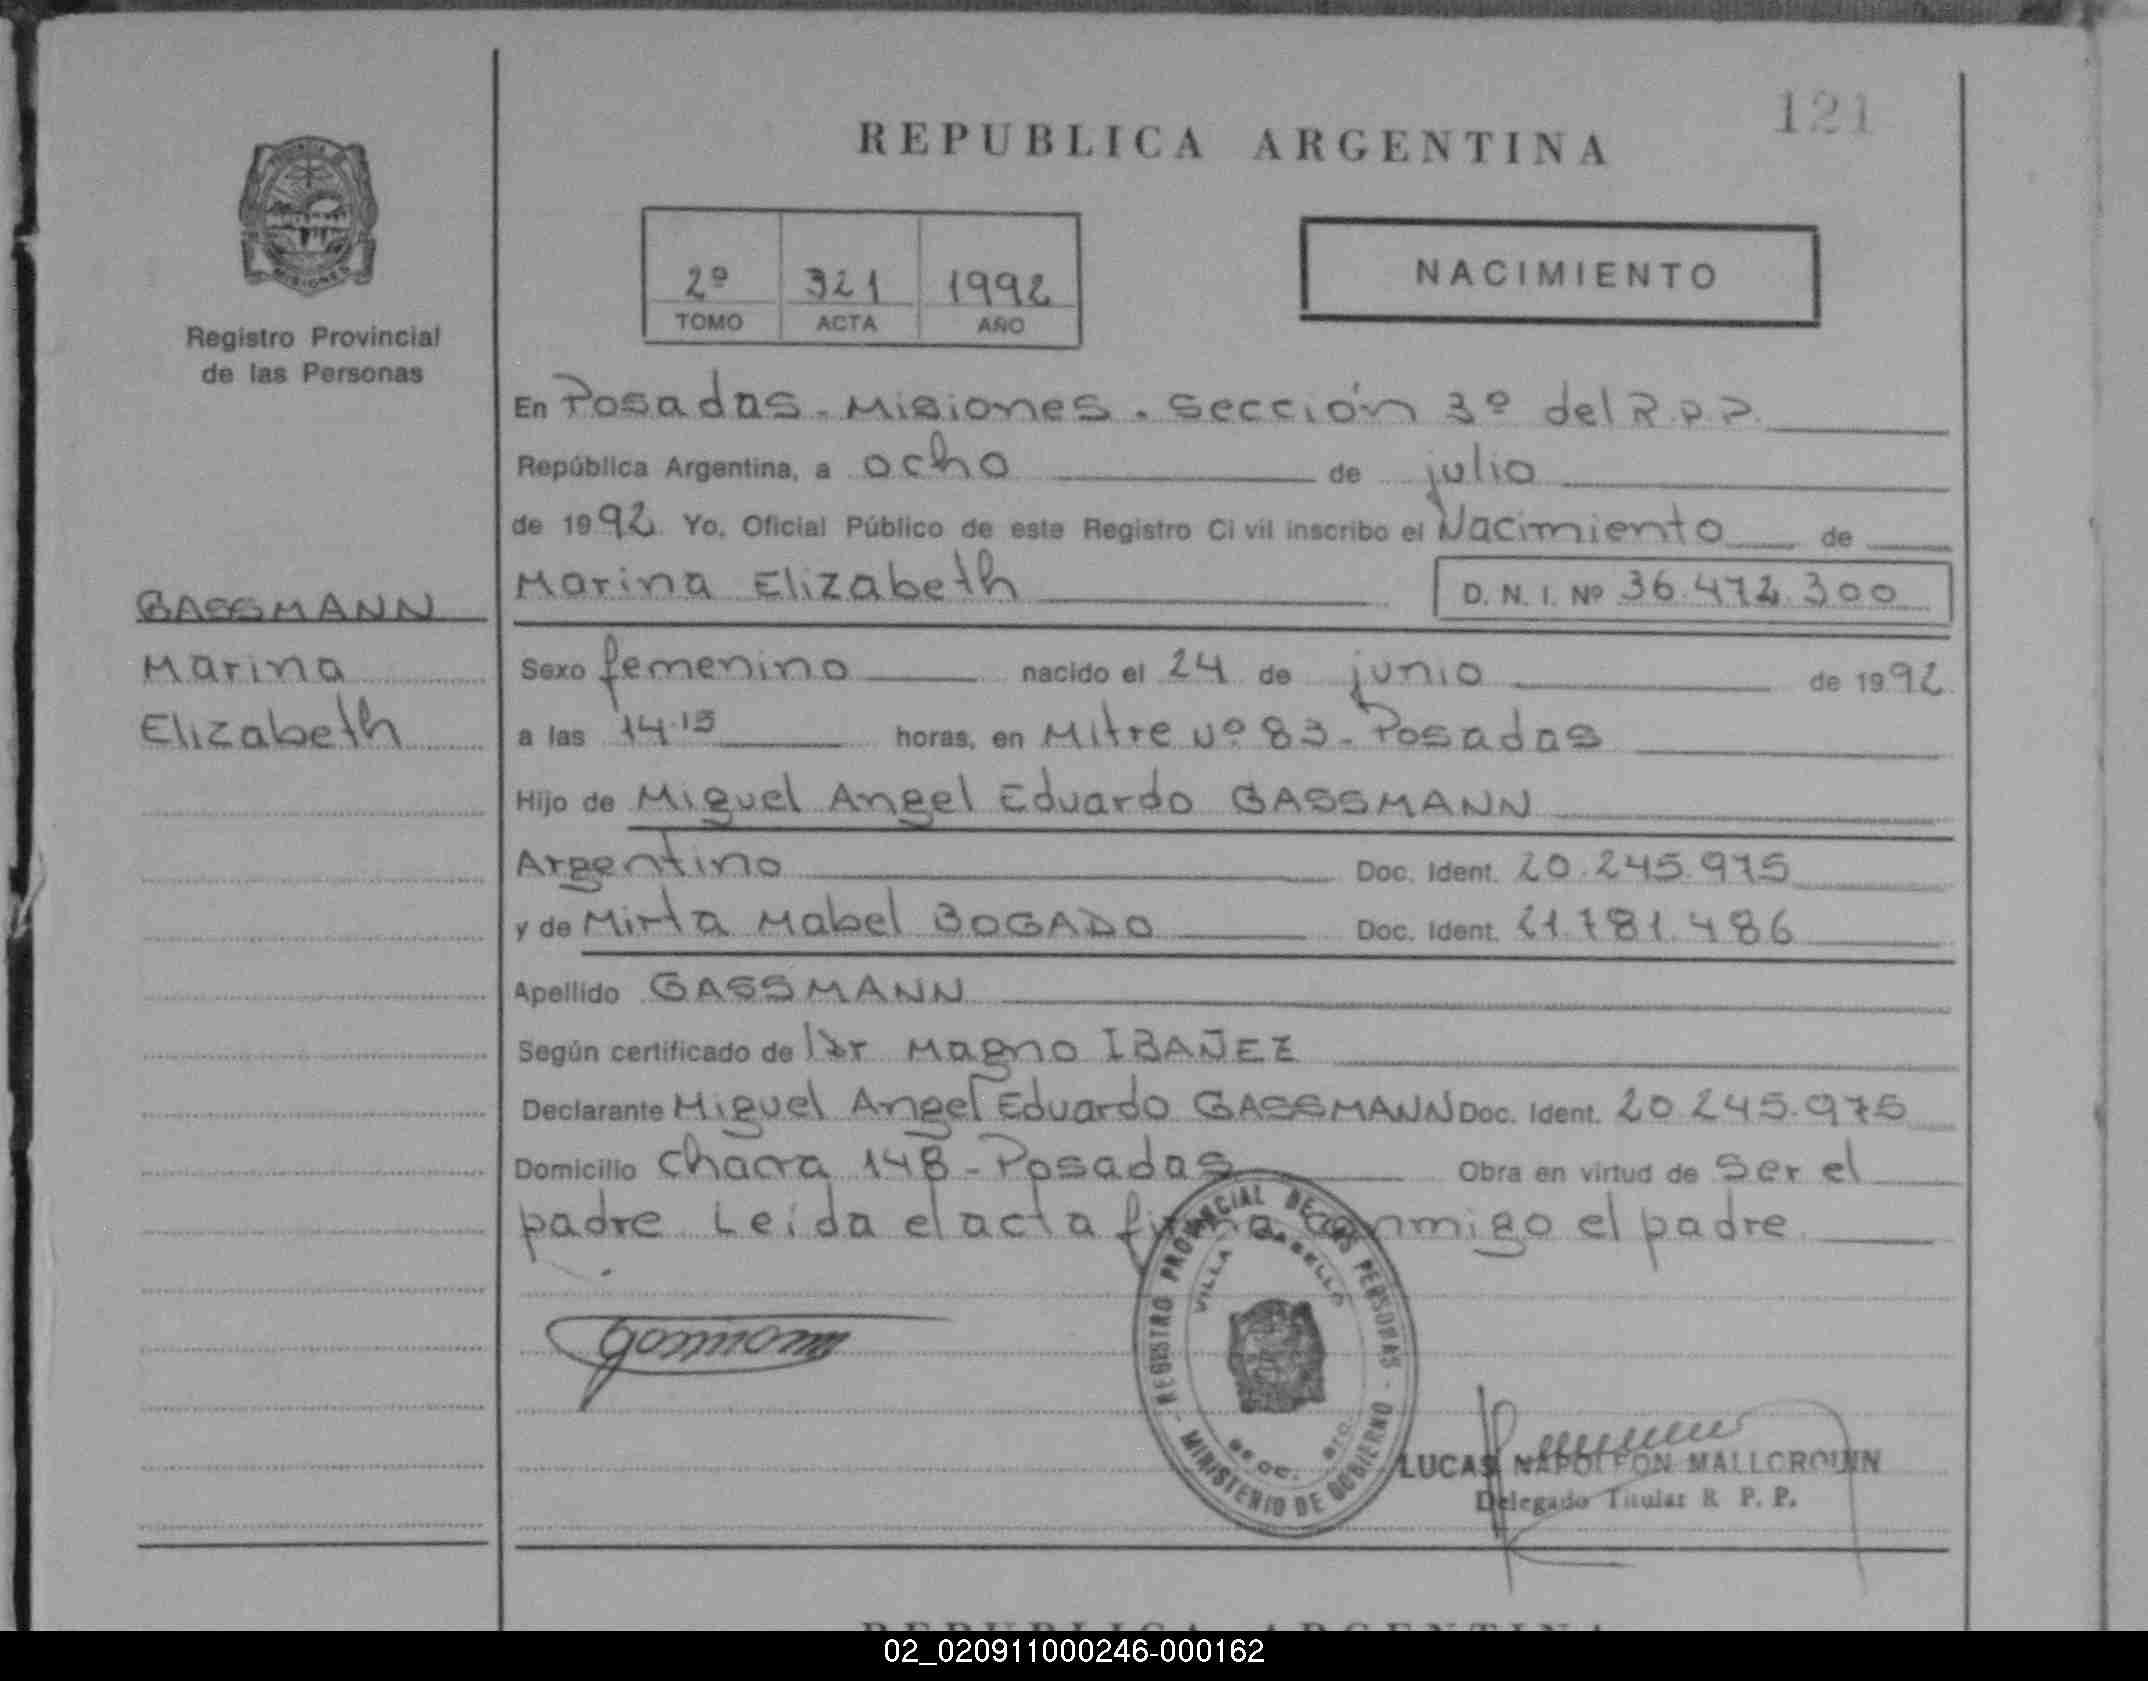 121
REPUBLICA ARGENTINA
PROVINCIA DE
MISIONES
Registro Provincial
de las Personas
2º 321 1992
TOMO ACTA AÑO
NACIMIENTO
En Posadas - Misiones - Sección 3º del R.P.P.
República Argentina, a ocho de julio
de 1992 Yo, Oficial Público de este Registro Civil inscribo el Nacimiento de
Marina Elizabeth D. N. I. Nº 36.472.300
GASSMANN
Marina
Elizabeth
Sexo femenino nacido el 24 de junio de 1992
a las 14.15 horas, en Mitre Nº 83 - Posadas
Hijo de Miguel Angel Eduardo GASSMANN
Argentino Doc. Ident. 20.245.975
y de Mirta Mabel BOGADO Doc. Ident. 21.781.486
Apellido GASSMANN
Según certificado de Dr Magno IBAÑEZ
Declarante Miguel Angel Eduardo GASSMANN Doc. Ident. 20.245.975
Domicilio Chacra 148 - Posadas Obra en virtud de ser el
padre Leida el acta firma conmigo el padre
REGISTRO PROVINCIAL DE LAS PERSONAS
VILLA CABELLO
MINISTERIO DE GOBIERNO
LUCAS NAPOLEON MALLORQUIN
Delegado Titular R. P. P.
REPUBLICA ARGENTINA
02_020911000246-000162